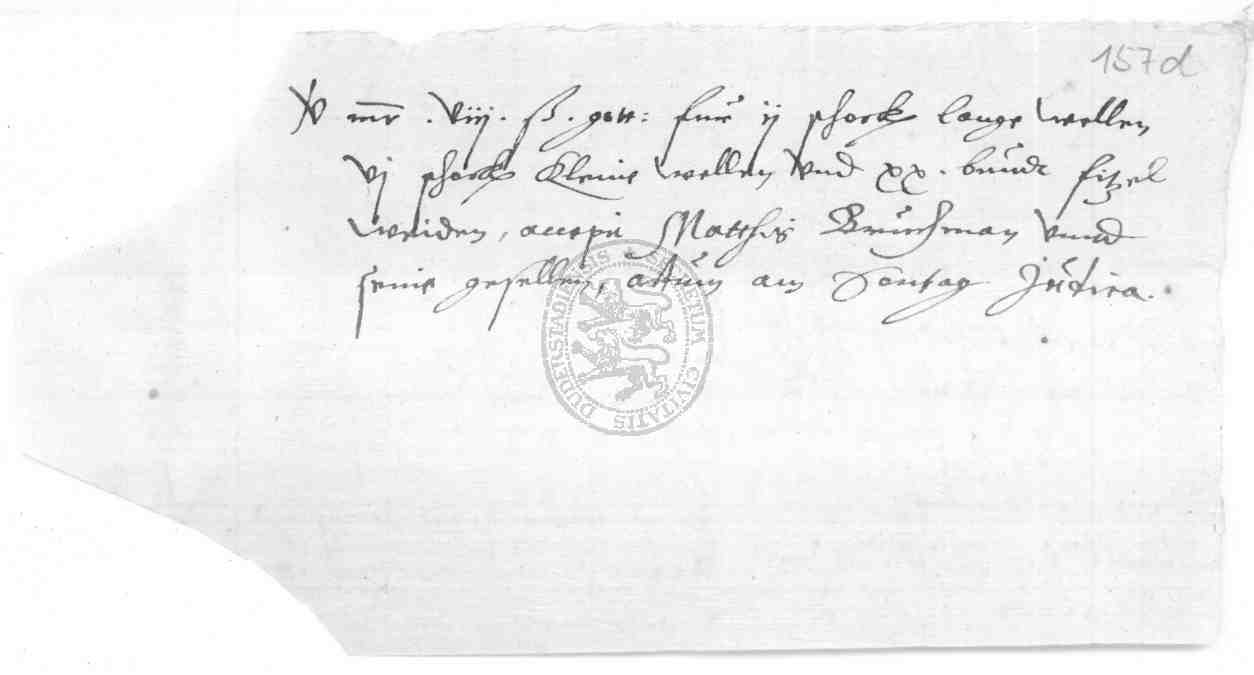 157d
v mr . viij . ß . gott: fur ij schock lange wellen
vj schock kleine wellen vnd xx . bundt fitzel
weiden, accepit Matthis Bruchman vnnd
seine gesellen, actum am Sontag Judica.
SECRETUM CIVITATIS DUDERSTADIENSIS